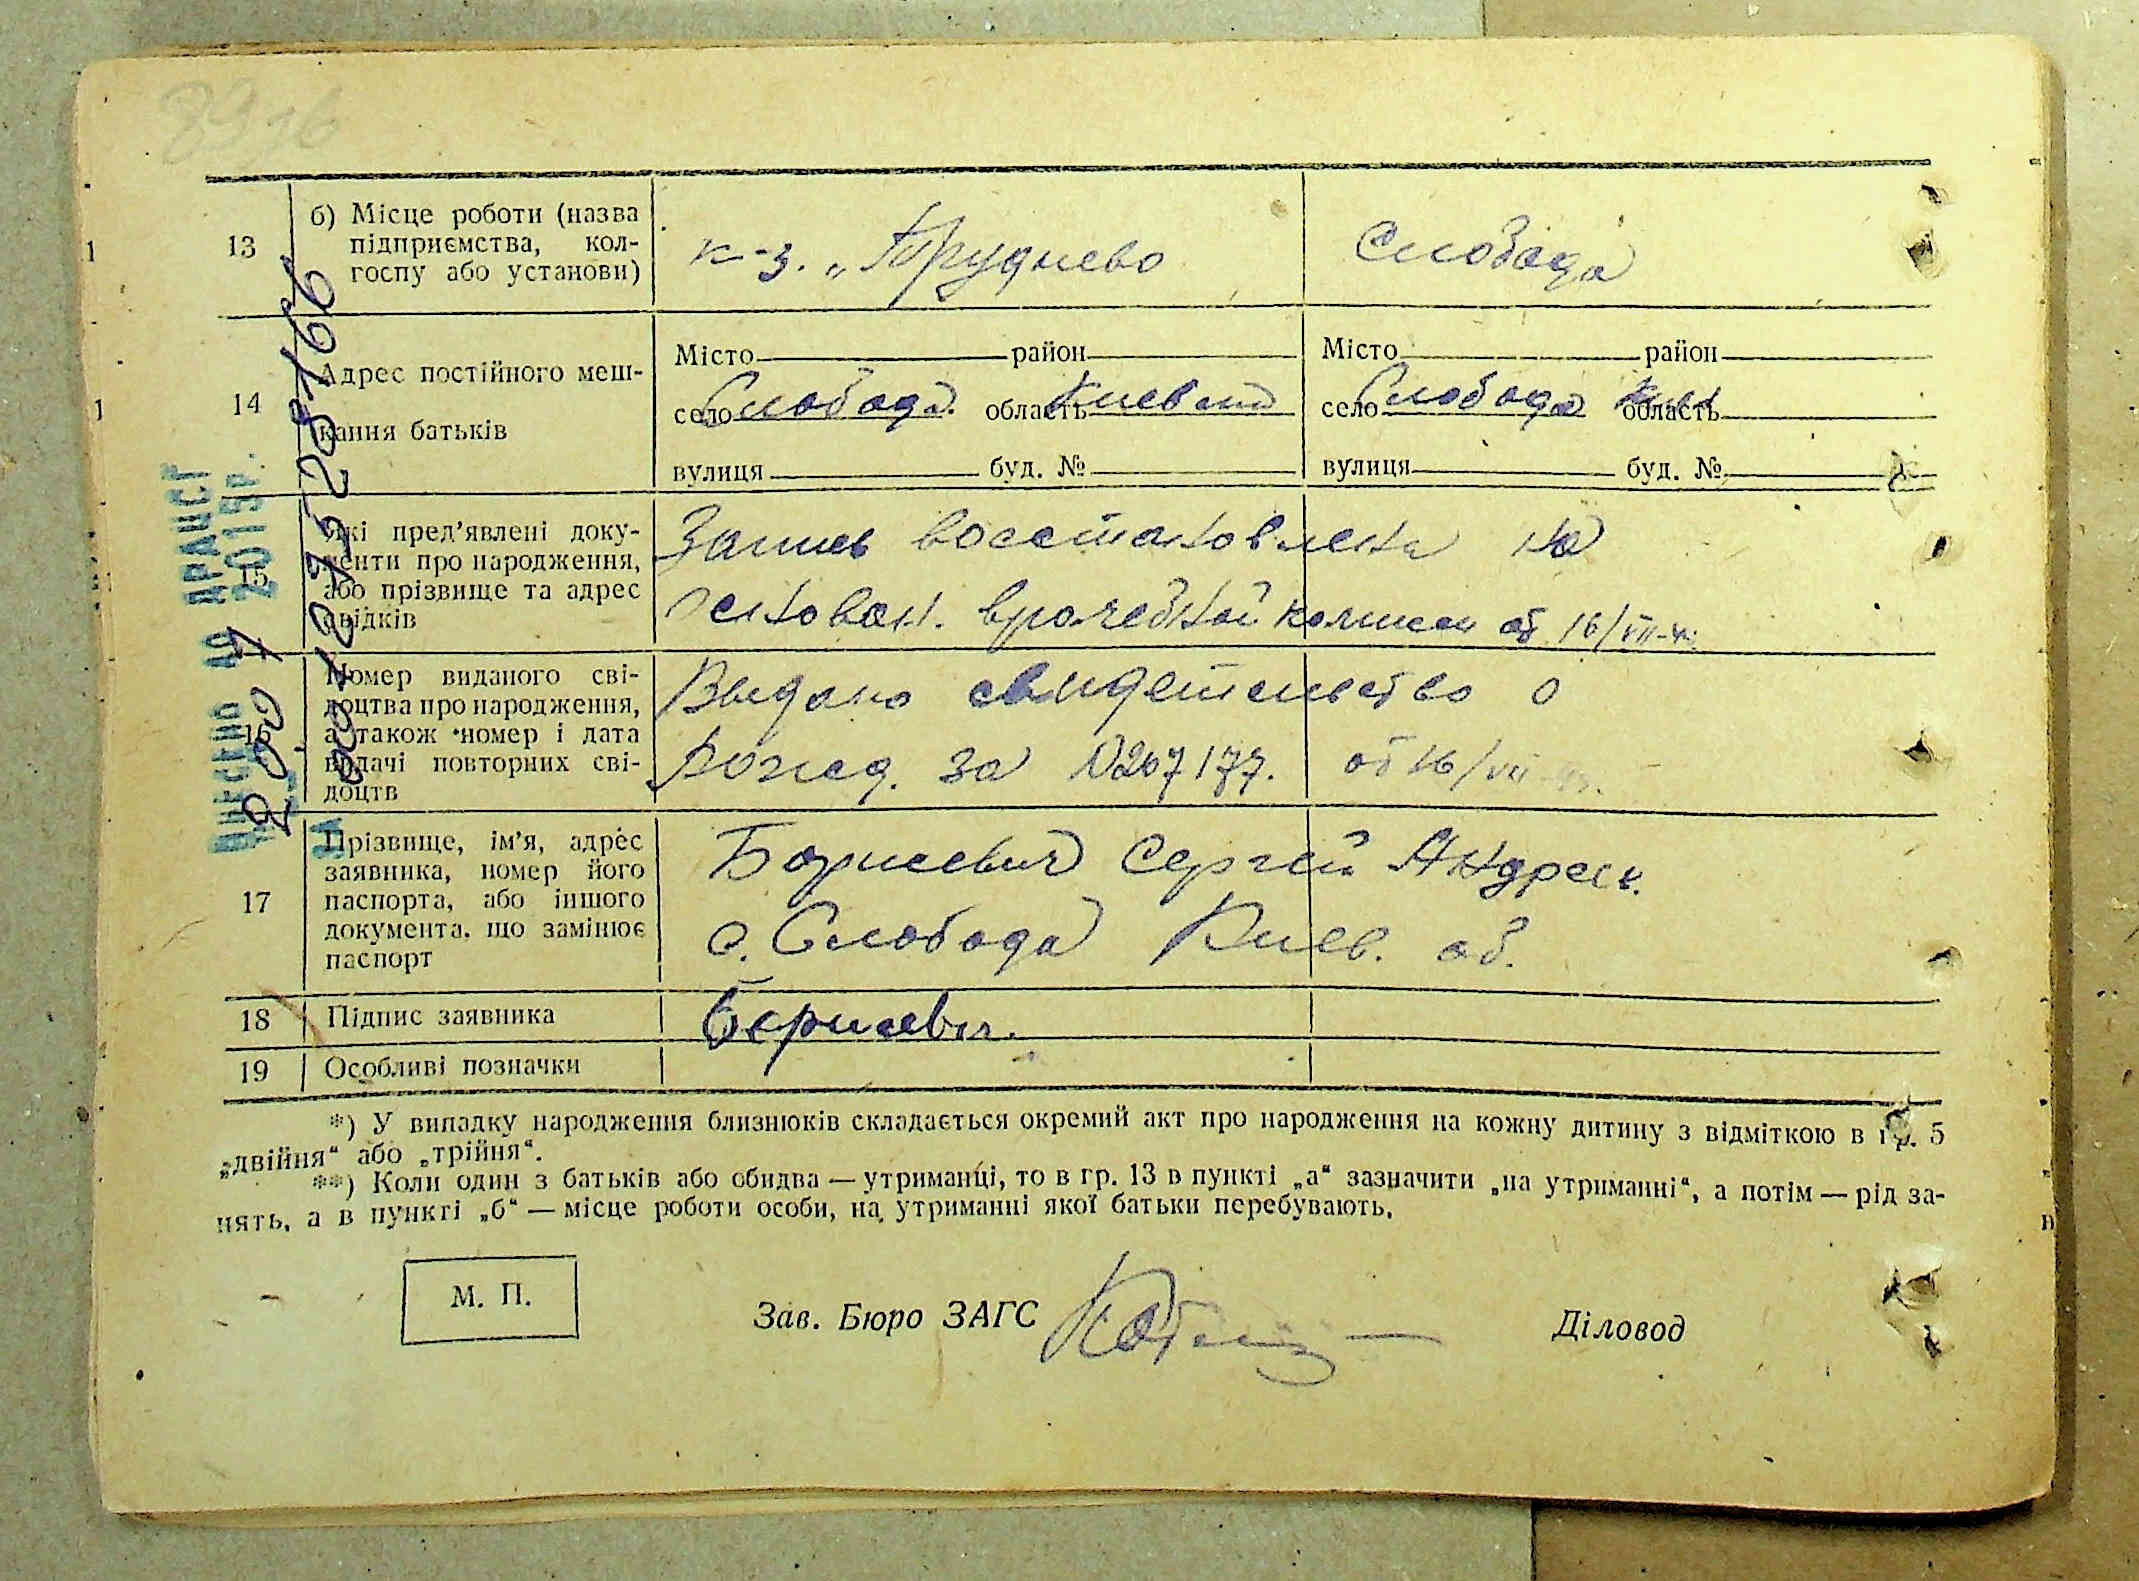 13 б) Місце роботи (назва
підприємства, кол-
госпу або установи)
к-з. „Труднево Слобода
14 Адрес постійного меш-
кання батьків
Місто район Місто район
село Слобода область Киевский село Слобода область Киев
вулиця буд. № вулиця буд. №
15 Які пред'явлені доку-
менти про народження,
або прізвище та адрес
свідків
Запись восстановлена на
основан. врачебной комисии от 16/VII
16 Номер виданого сві-
доцтва про народження,
а також номер і дата
видачі повторних сві-
доцтв
Выдано свидетельство о
рожд. за 0207177. от 16/VII
17 Прізвище, ім'я, адрес
заявника, номер його
паспорта, або іншого
документа, що замінює
паспорт
Борисевич Сергей Андреев.
с. Слобода Киев. об.
18 Підпис заявника Борисевич.
19 Особливі позначки
*) У випадку народження близнюків складається окремий акт про народження на кожну дитину з відміткою в гр. 5
„двійня“ або „трійня“.
**) Коли один з батьків або обидва — утриманці, то в гр. 13 в пункті „а“ зазначити „на утриманні“, а потім — рід за-
нять, а в пункті „б“ — місце роботи особи, на утриманні якої батьки перебувають.
М. П.
Зав. Бюро ЗАГС Діловод
ВНЕСЕНО ДО ДРАЦСГ
2015р.